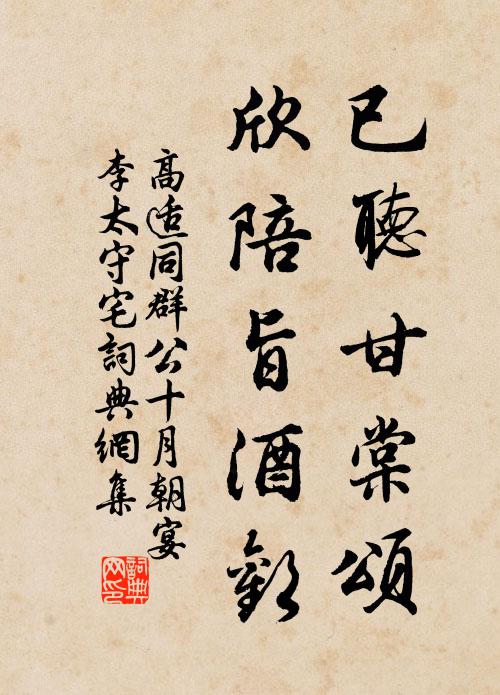 已聽甘棠頌
欣陪旨酒歡
高适同群公十月朝宴
李太守宅詞典網集
詞典
网印